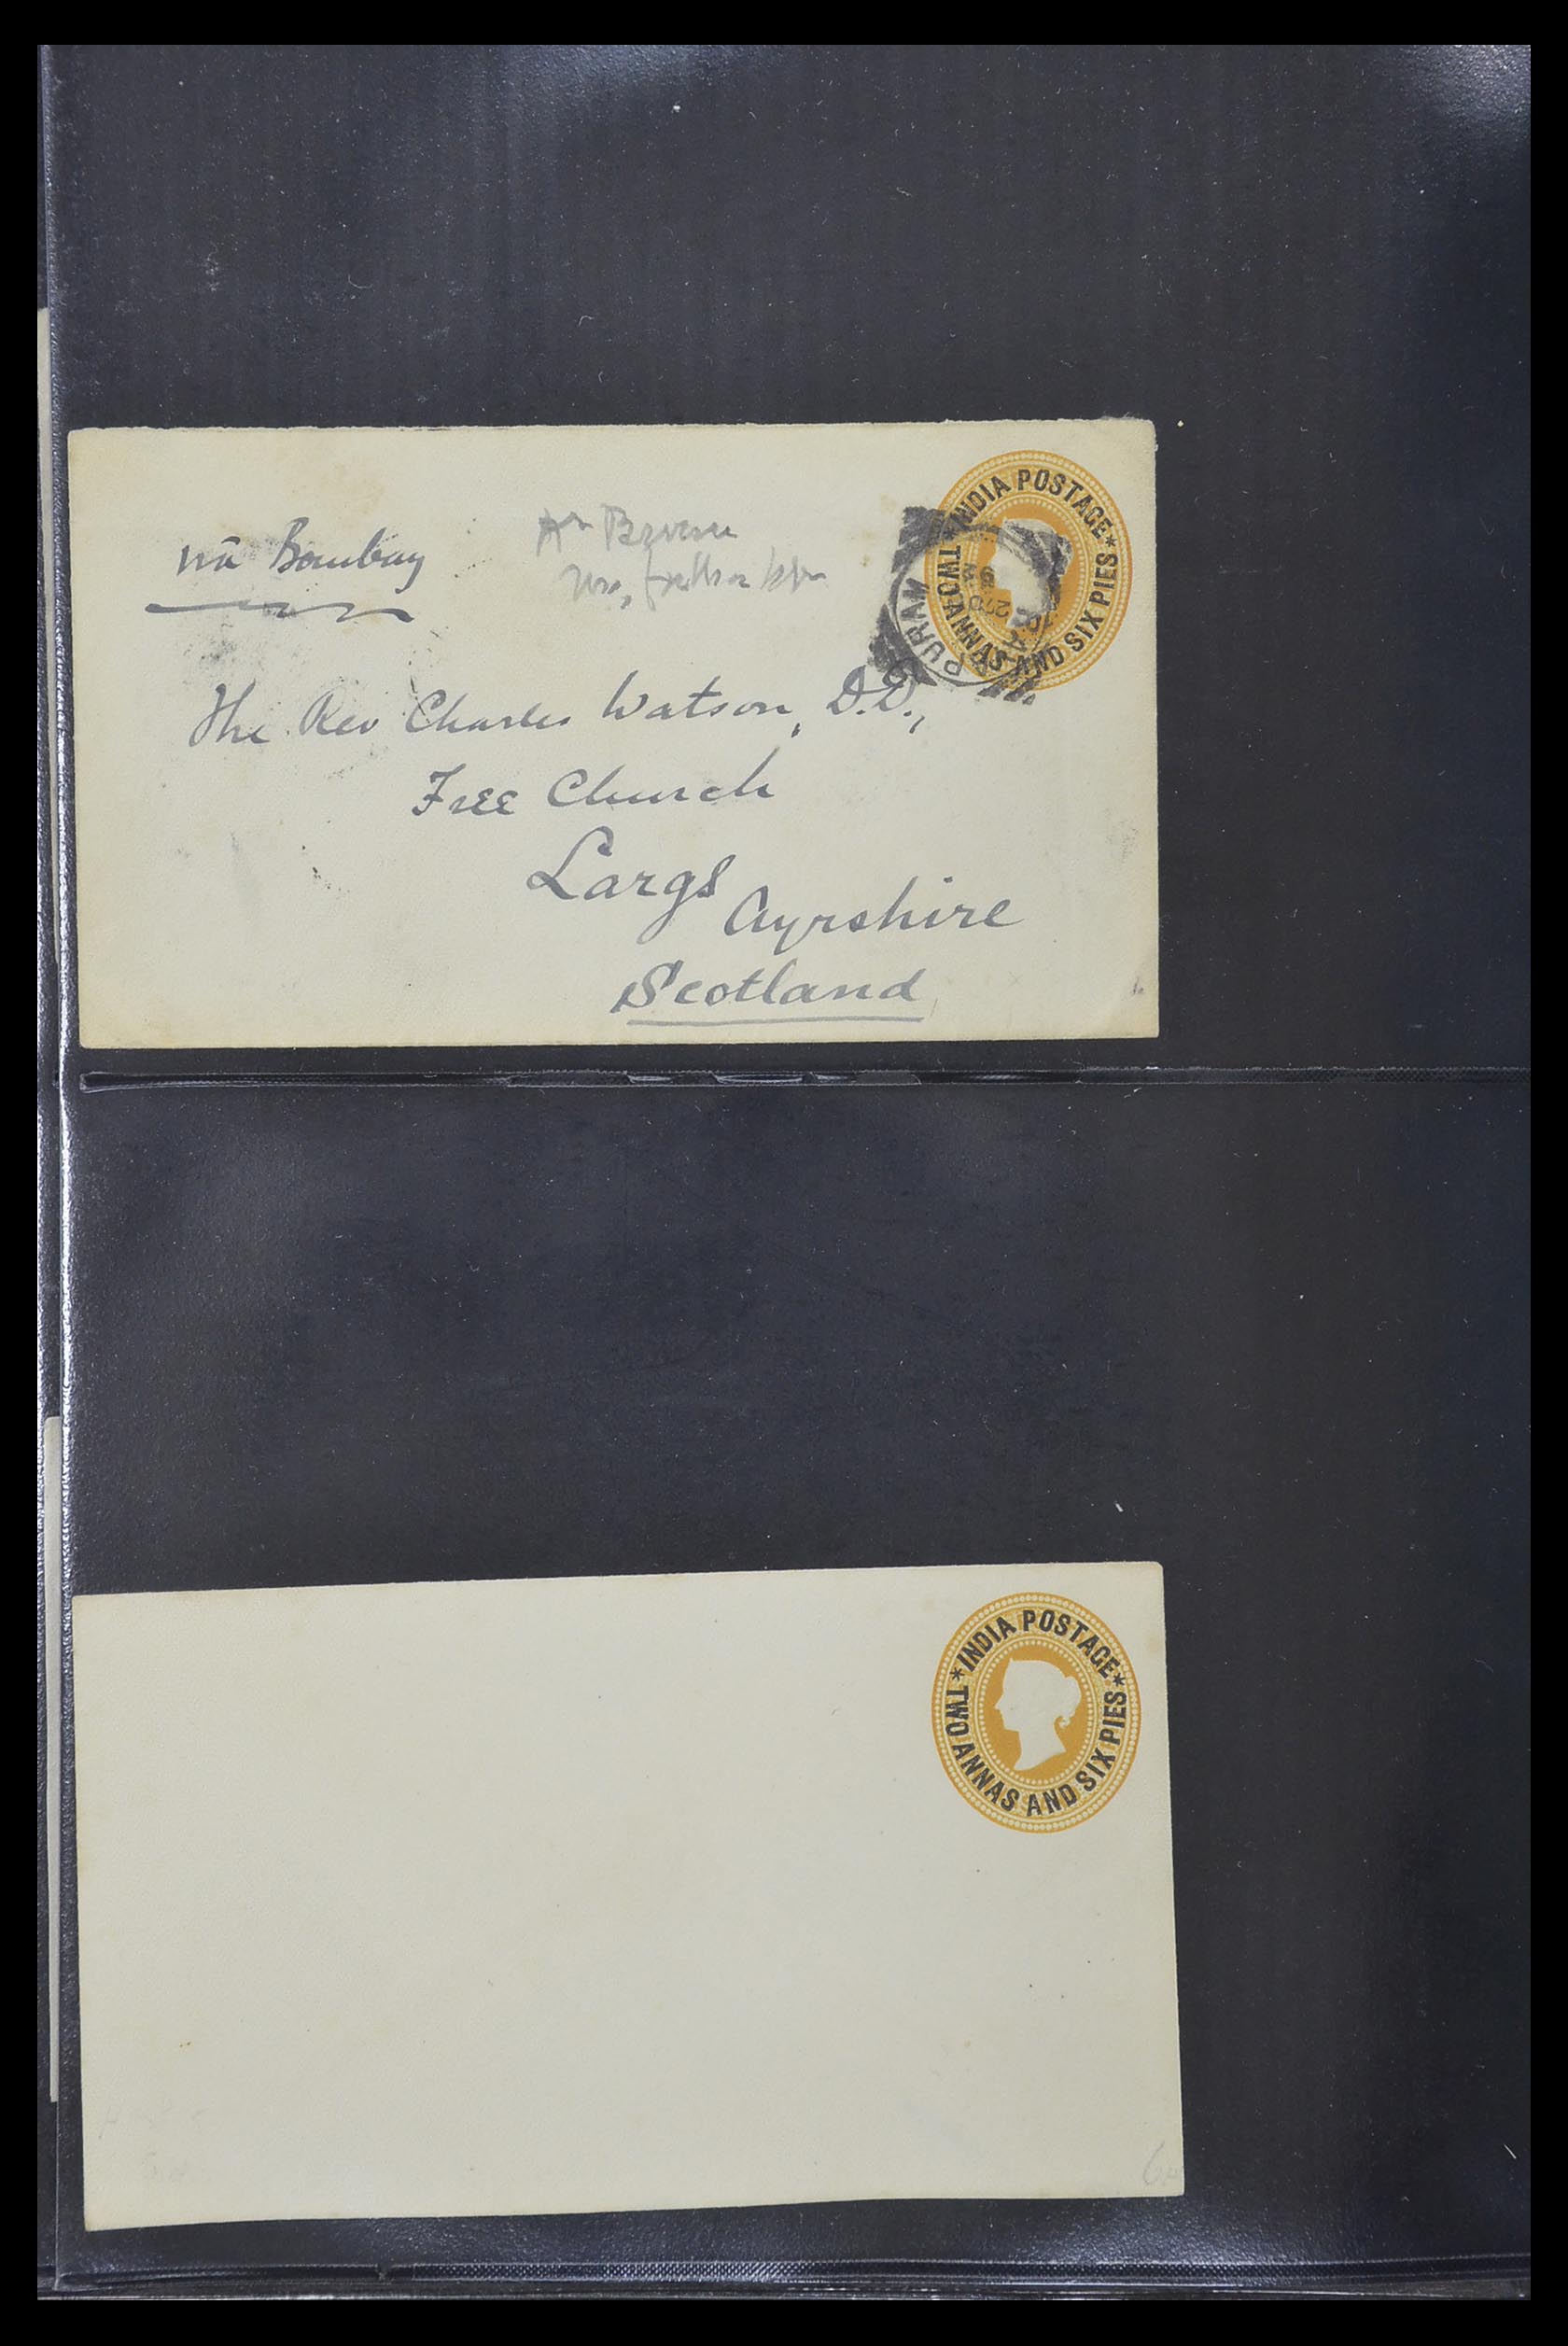 via Bombay
INDIA POSTAGE
TWO ANNAS AND SIX PIES
PURAM
The Rev Charles Watson, D.D.,
Free Church
Largs
Ayrshire
Scotland
INDIA POSTAGE
TWO ANNAS AND SIX PIES